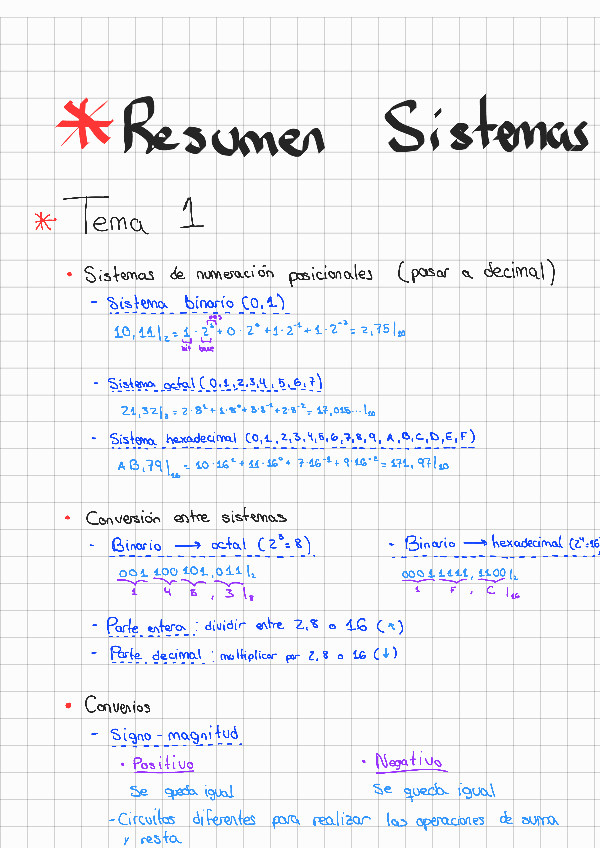 * Resumen Sistemas
* Tema 1
• Sistemas de numeración posicionales (pasar a decimal)
- Sistema binario (0,1)
10,11|₂ = 1·2¹ + 0·2⁰ + 1·2⁻¹ + 1·2⁻² = 2,75|₁₀
bit base
- Sistema octal (0,1,2,3,4,5,6,7)
21,32|₈ = 2·8¹ + 1·8⁰ + 3·8⁻¹ + 2·8⁻² = 17,015...|₁₀
- Sistema hexadecimal (0,1,2,3,4,5,6,7,8,9,A,B,C,D,E,F)
AB,79|₁₆ = 10·16¹ + 11·16⁰ + 7·16⁻¹ + 9·16⁻² = 171,97|₁₀
• Conversión entre sistemas
- Binario → octal (2³=8) - Binario → hexadecimal (2⁴=16
001 100 101,011|₂ 00011111,1100|₂
1 4 5 , 3|₈ 1 F , C|₁₆
- Parte entera: dividir entre 2,8 o 16 (↖)
- Parte decimal: multiplicar por 2,8 o 16 (↓)
• Convenios
- Signo-magnitud
• Positivo • Negativo
Se queda igual Se queda igual
- Circuitos diferentes para realizar las operaciones de suma
y resta